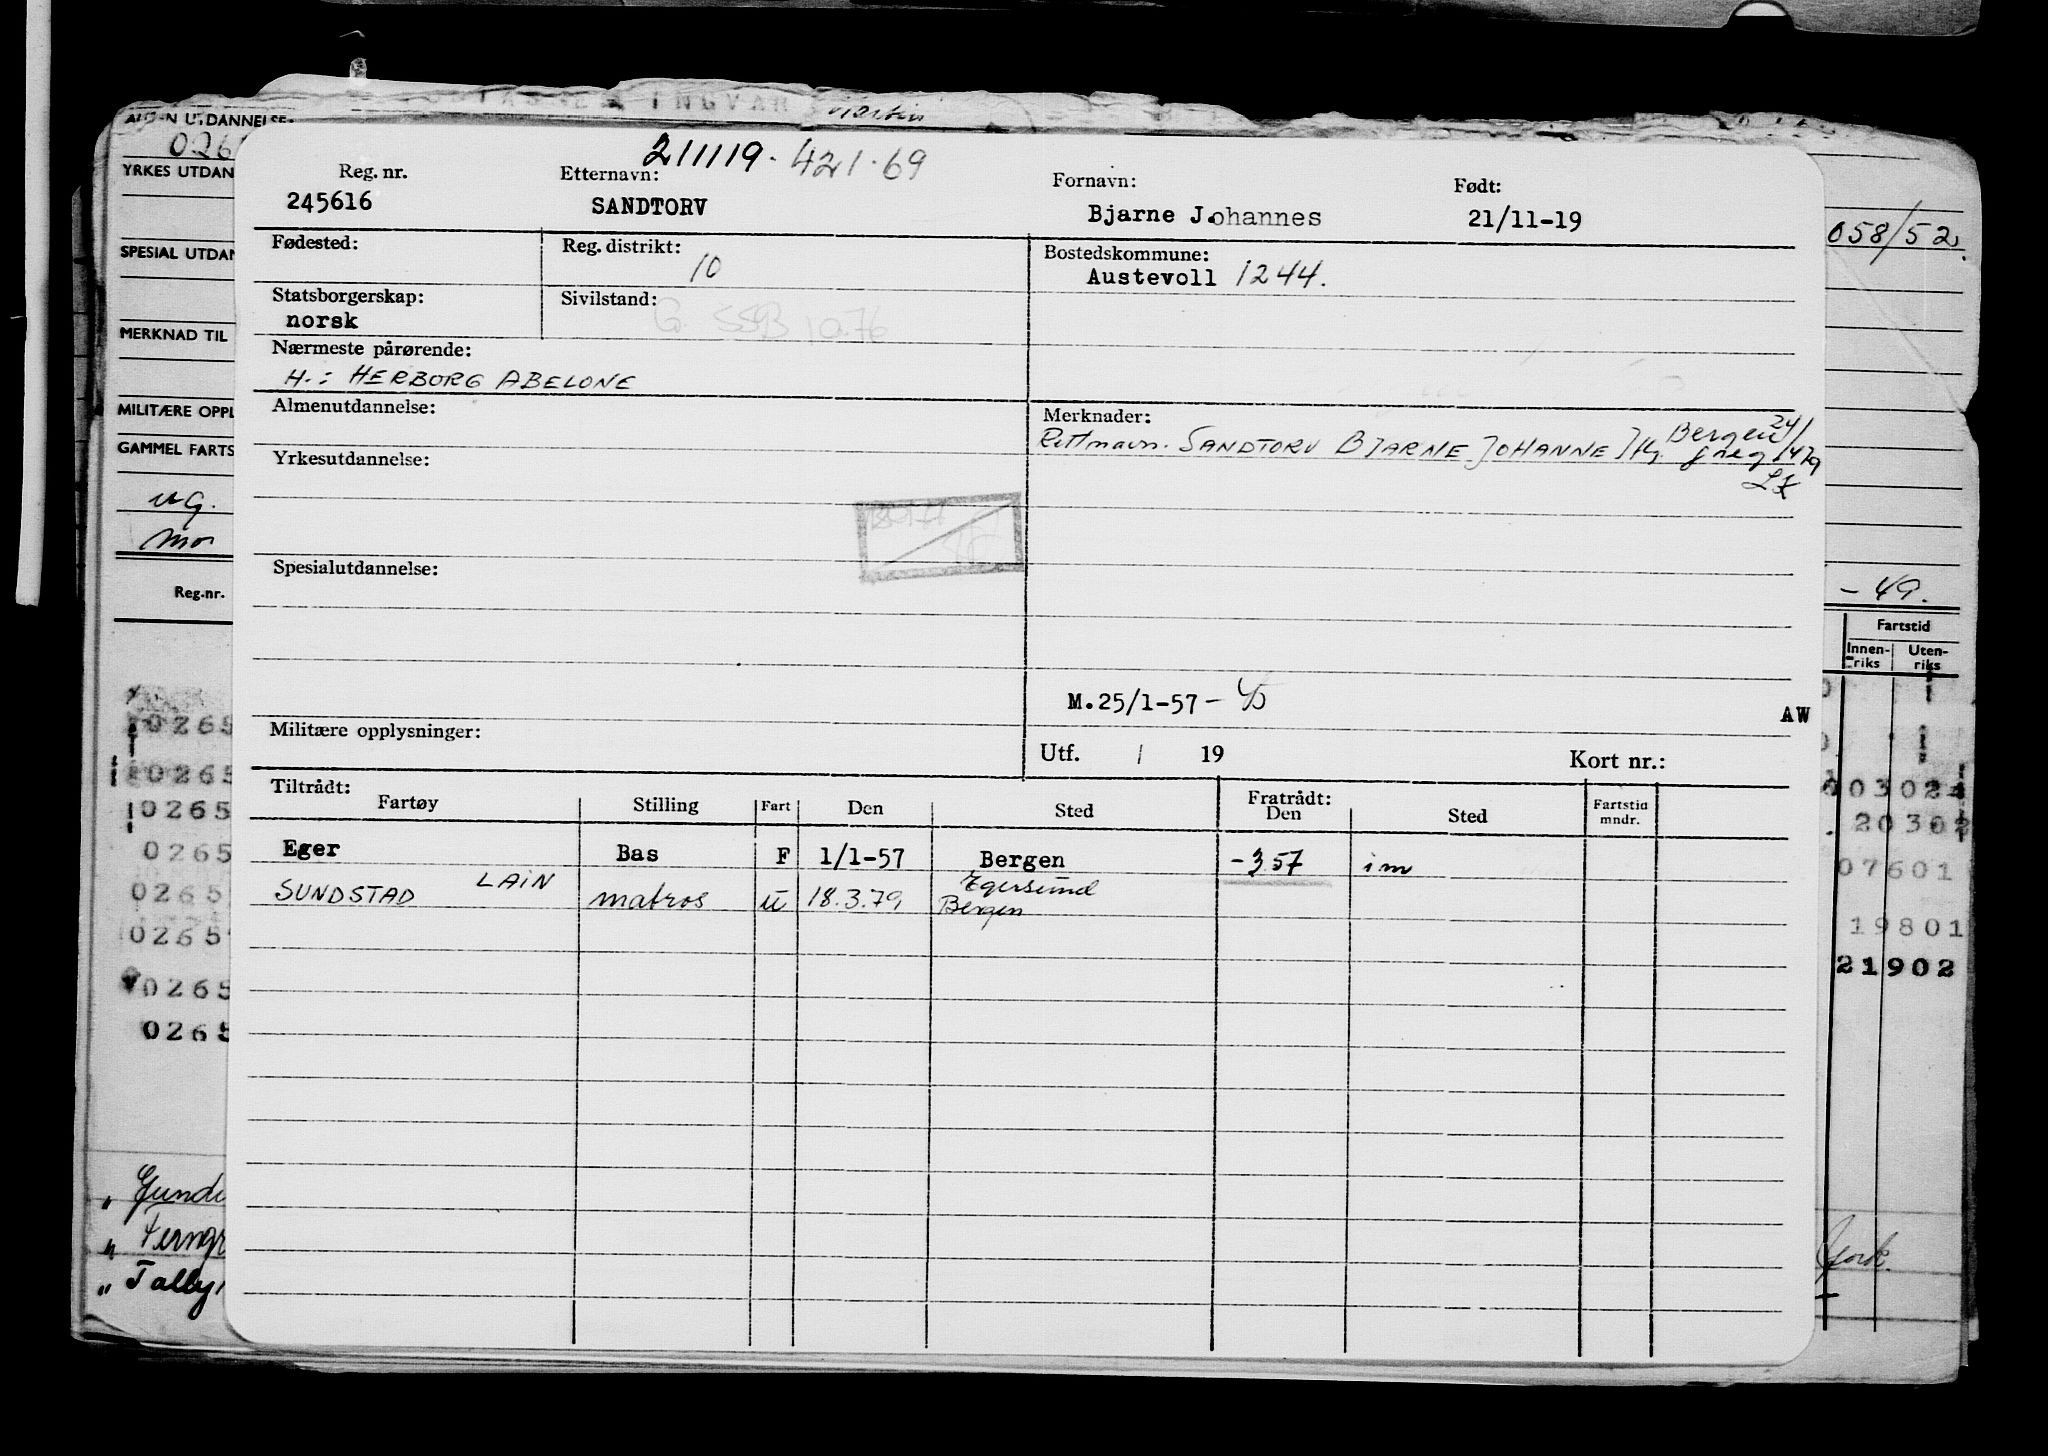 INGVAR Martin
ALMEN UTDANNELSE:
026
YRKES UTDAN
SPESIAL UTDAN
MERKNAD TIL
MILITÆRE OPPL
GAMMEL FARTS
Reg.nr.
0265
0265
0265
0265
0265
0265
0265
0265
" Tally
211119. 421.69
Reg. nr. Etternavn: Fornavn: Født:
245616 SANDTORV Bjarne Johannes 21/11-19
Fødested: Reg. distrikt: 10 Bostedskommune:
Austevoll 1244.
Statsborgerskap: Sivilstand:
norsk G. SSB 10.76
Nærmeste pårørende:
H.: HERBORG ABELONE
Almenutdannelse: Merknader:
Rettnavn. SANDTORV BJARNE JOHANNE Bergen 24/
Yrkesutdannelse:
Spesialutdannelse:
M.25/1-57 -
AW
Militære opplysninger: Utf. / 19 Kort nr.:
Tiltrådt: Fratrådt:
Fartøy Stilling Fart Den Sted Den Sted Fartstid mndr.
Eger Bas F 1/1-57 Bergen -357 im
SUNDSTAD LAIN matros u 18.3.79 Egersund
Bergen
058/52
-49.
Fartstid
Innen-riks Uten-riks
20302
07601
19801
21902
York.